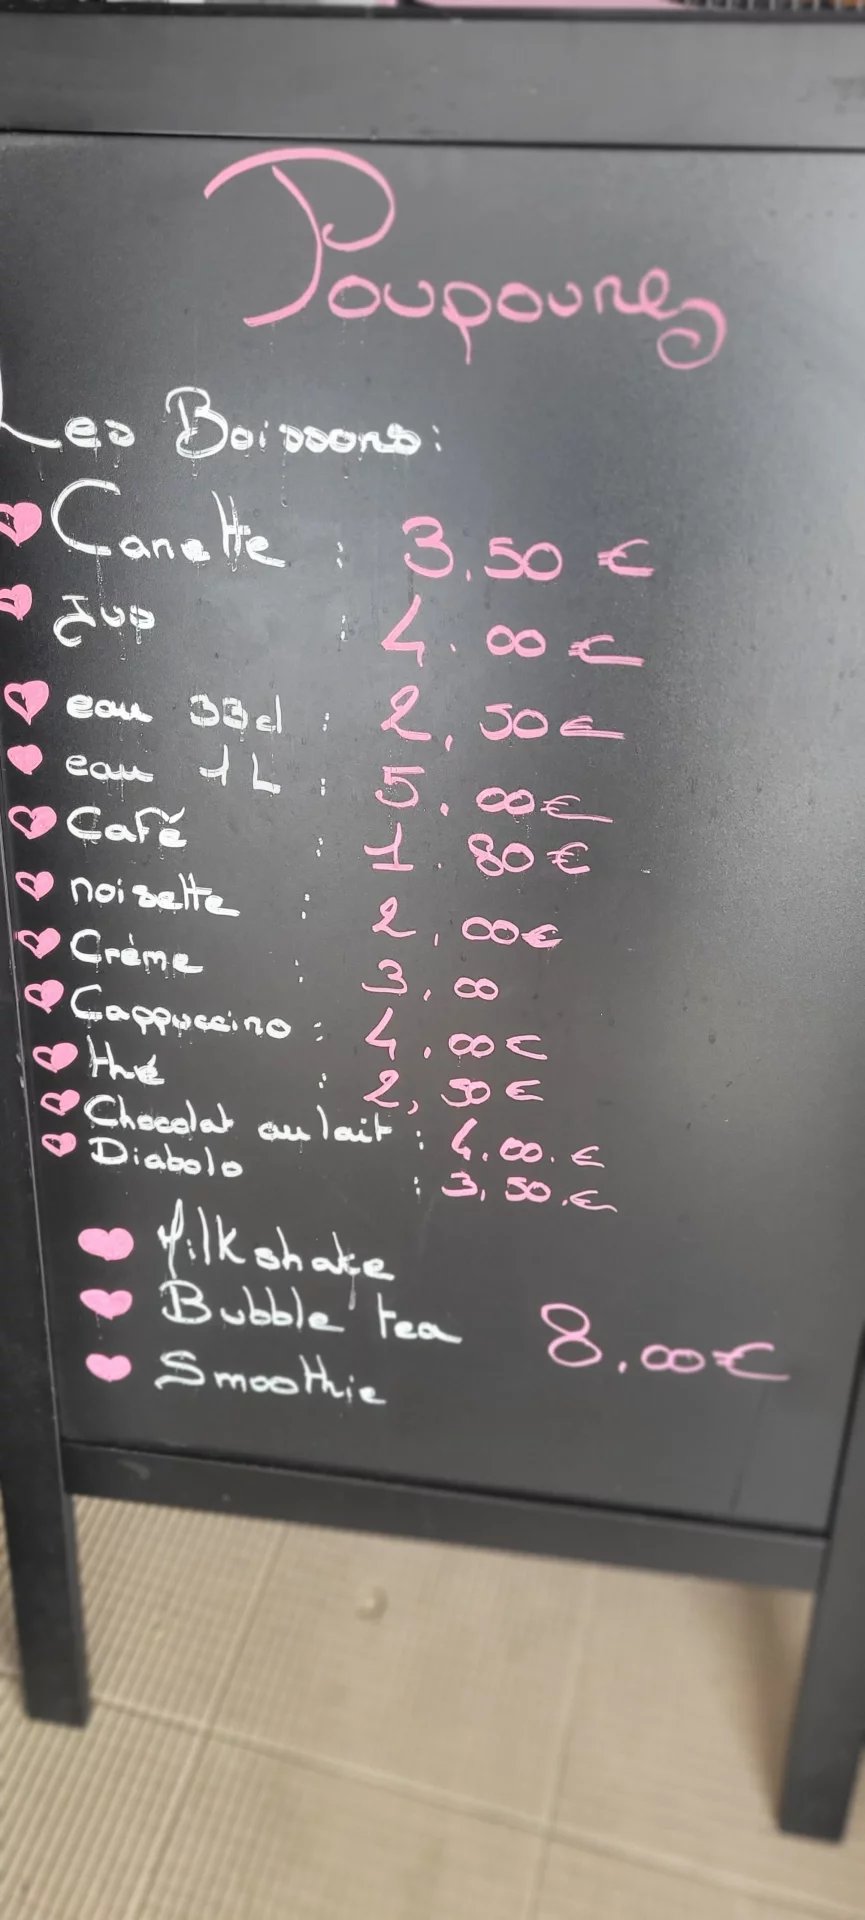 Poupounes
Les Boissons:
Canette : 3.50 €
Jus : 4.00 €
eau 33cl : 2,50 €
eau 1L : 5,00 €
Café : 1.80 €
noisette : 2,00 €
Crème : 3,00
Cappuccino : 4.00 €
thé : 2,50 €
Chocolat au lait : 4.00. €
Diabolo : 3,50. €
Milkshake
Bubble tea 8.00 €
Smoothie